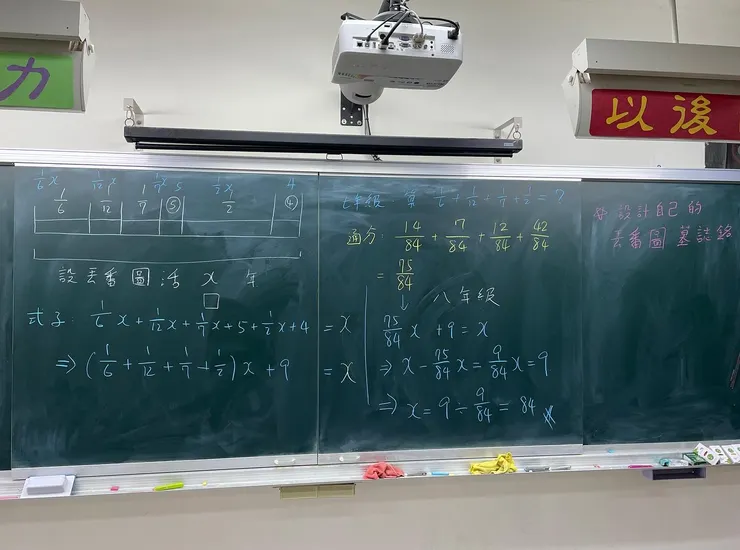 力
以後
1/6 x 1/12 x 1/7 x 5 1/2 x 4
1/6 1/12 1/7 ⑤ 1/2 ④
設丟番圖活 x 年
□
式子: 1/6 x + 1/12 x + 1/7 x + 5 + 1/2 x + 4 = x
⇒ (1/6 + 1/12 + 1/7 + 1/2) x + 9 = x
七年級: 算 1/6 + 1/12 + 1/7 + 1/2 = ?
通分: 14/84 + 7/84 + 12/84 + 42/84
= 75/84
↓ 八年級
75/84 x + 9 = x
⇒ x - 75/84 x = 9/84 x = 9
⇒ x = 9 ÷ 9/84 = 84
設計自己的
丟番圖墓誌銘